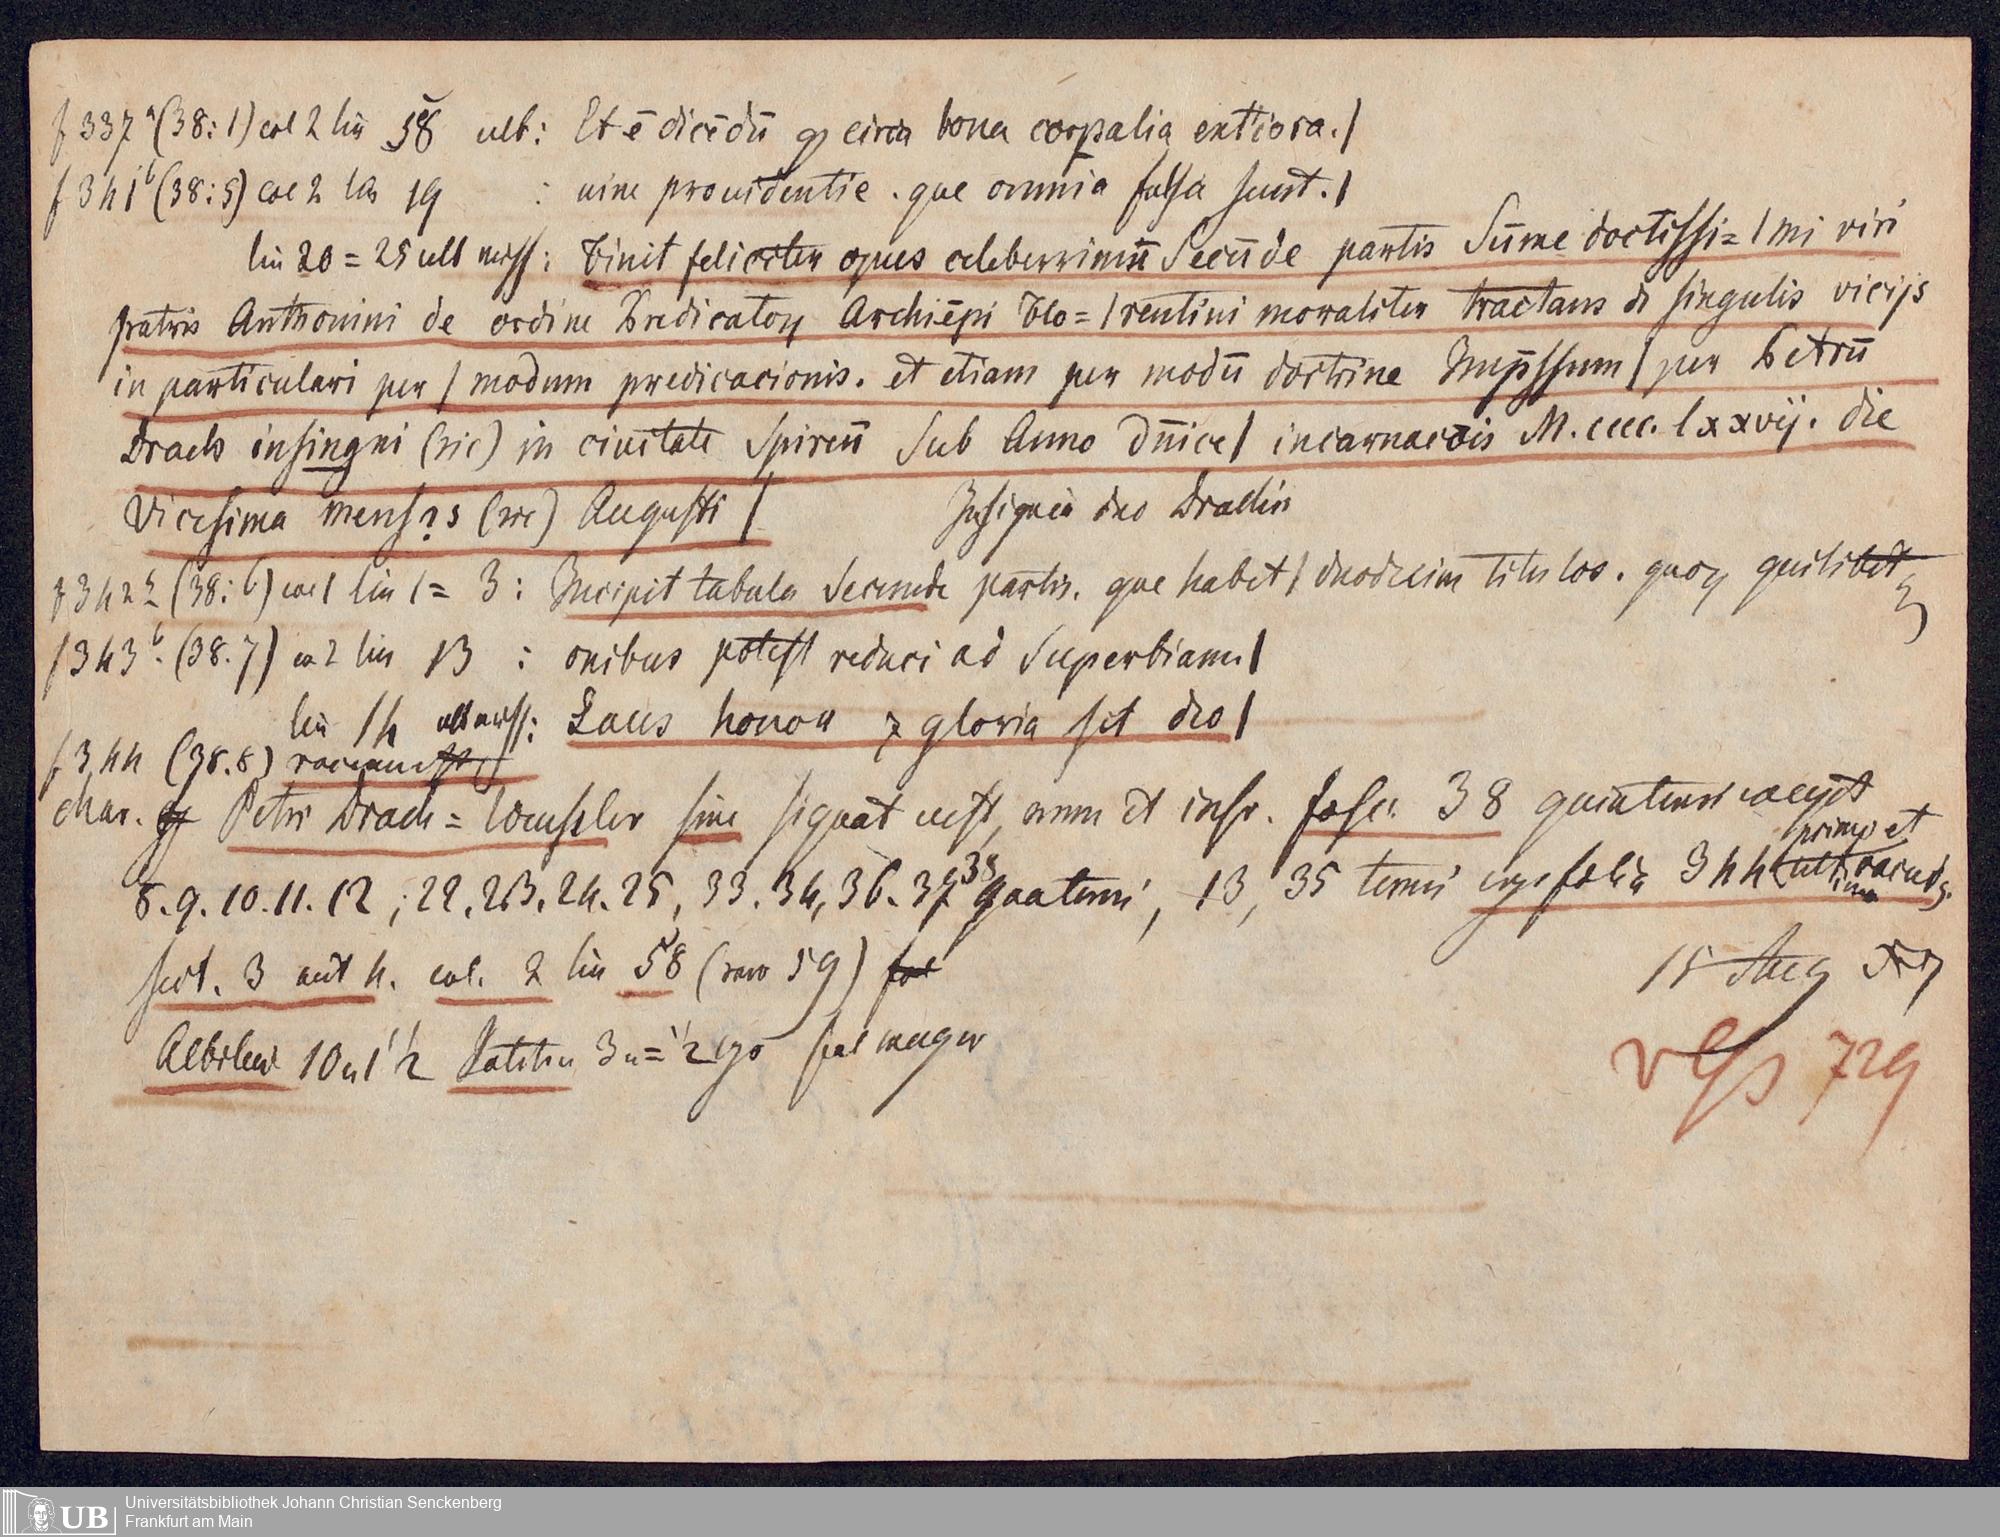 f 337a (38:1) col 2 lin 58 ult: Et ē dicēdū ꝙ circa bona corꝑalia extiora./
f 341b (38:5) col 2 lin 19 : uine prouidentie . que omnia falsa sunt./
lin 20 = 25 ult : Finit feliciter opus celeberrimū Secūde partis Sūme doctissi= / mi viri
patris Anthonini de ordine Predicatoꝝ Archiēpi Flo= / rentini moraliter tractans d' singulis vicijs
in particulari per / modum predicacionis. et etiam per modū doctrine Imp̄ssum / per Petrū
Drach insingni (sic) in ciuitate Spireñ Sub Anno dn̄ice / incarnacōis M.cccc.lxxvij. die
Vicesima mensıs (sic) Augusti / Insignia duo Drachii
f 342a (38:6) col 1 lin 1 = 3 : Incipit tabula Secunde partis. que habet / duodecim titulos. quoꝝ quilibet
f 343b. (38.7) co 2 lin 13 : onibus potest reduci ad Superbiam./
lin 14 : Laus honor ⁊ gloria sit deo /
f 344 (38.8)
char. Petri Drach = sine signat cust, num et inscr. fasc. 38 quinterni except
8.9.10.11.12 ; 22.23.24.25, 33.34, 36.37 38 quaterni, 13, 35 terni ergo folia 344 (primo et ultimo vacuis).
script. 3 aut 4. col. 2 lin 58 (raro 59)
15 Aug
729